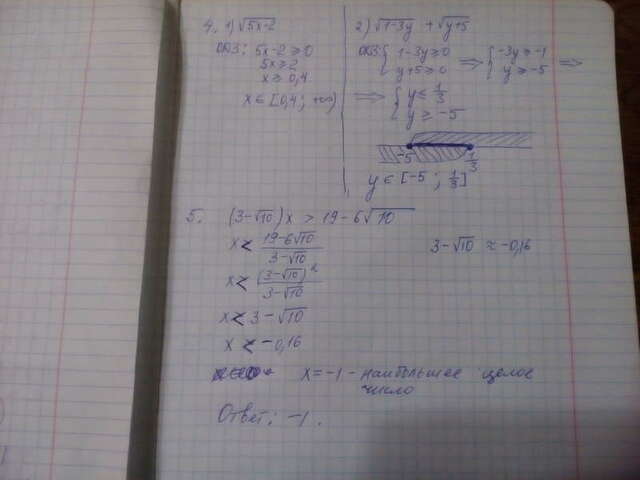 4. 1) √5x-2
ОДЗ: 5x-2≥0
5x≥2
x≥0,4
x∈[0,4; +∞)
2) √1-3y + √y+5
ОДЗ: { 1-3y≥0 ⇒ { -3y≥-1 ⇒
y+5≥0 y≥-5
⇒ { y≤ 1/3
y≥-5
-5 1/3
y∈[-5; 1/3]
5. (3-√10)x > 19-6√10
x< 19-6√10 / 3-√10 3-√10 ≈ -0,16
x< (3-√10)² / 3-√10
x<3-√10
x<-0,16
x=-1 - наибольшее целое
число
Ответ: -1.